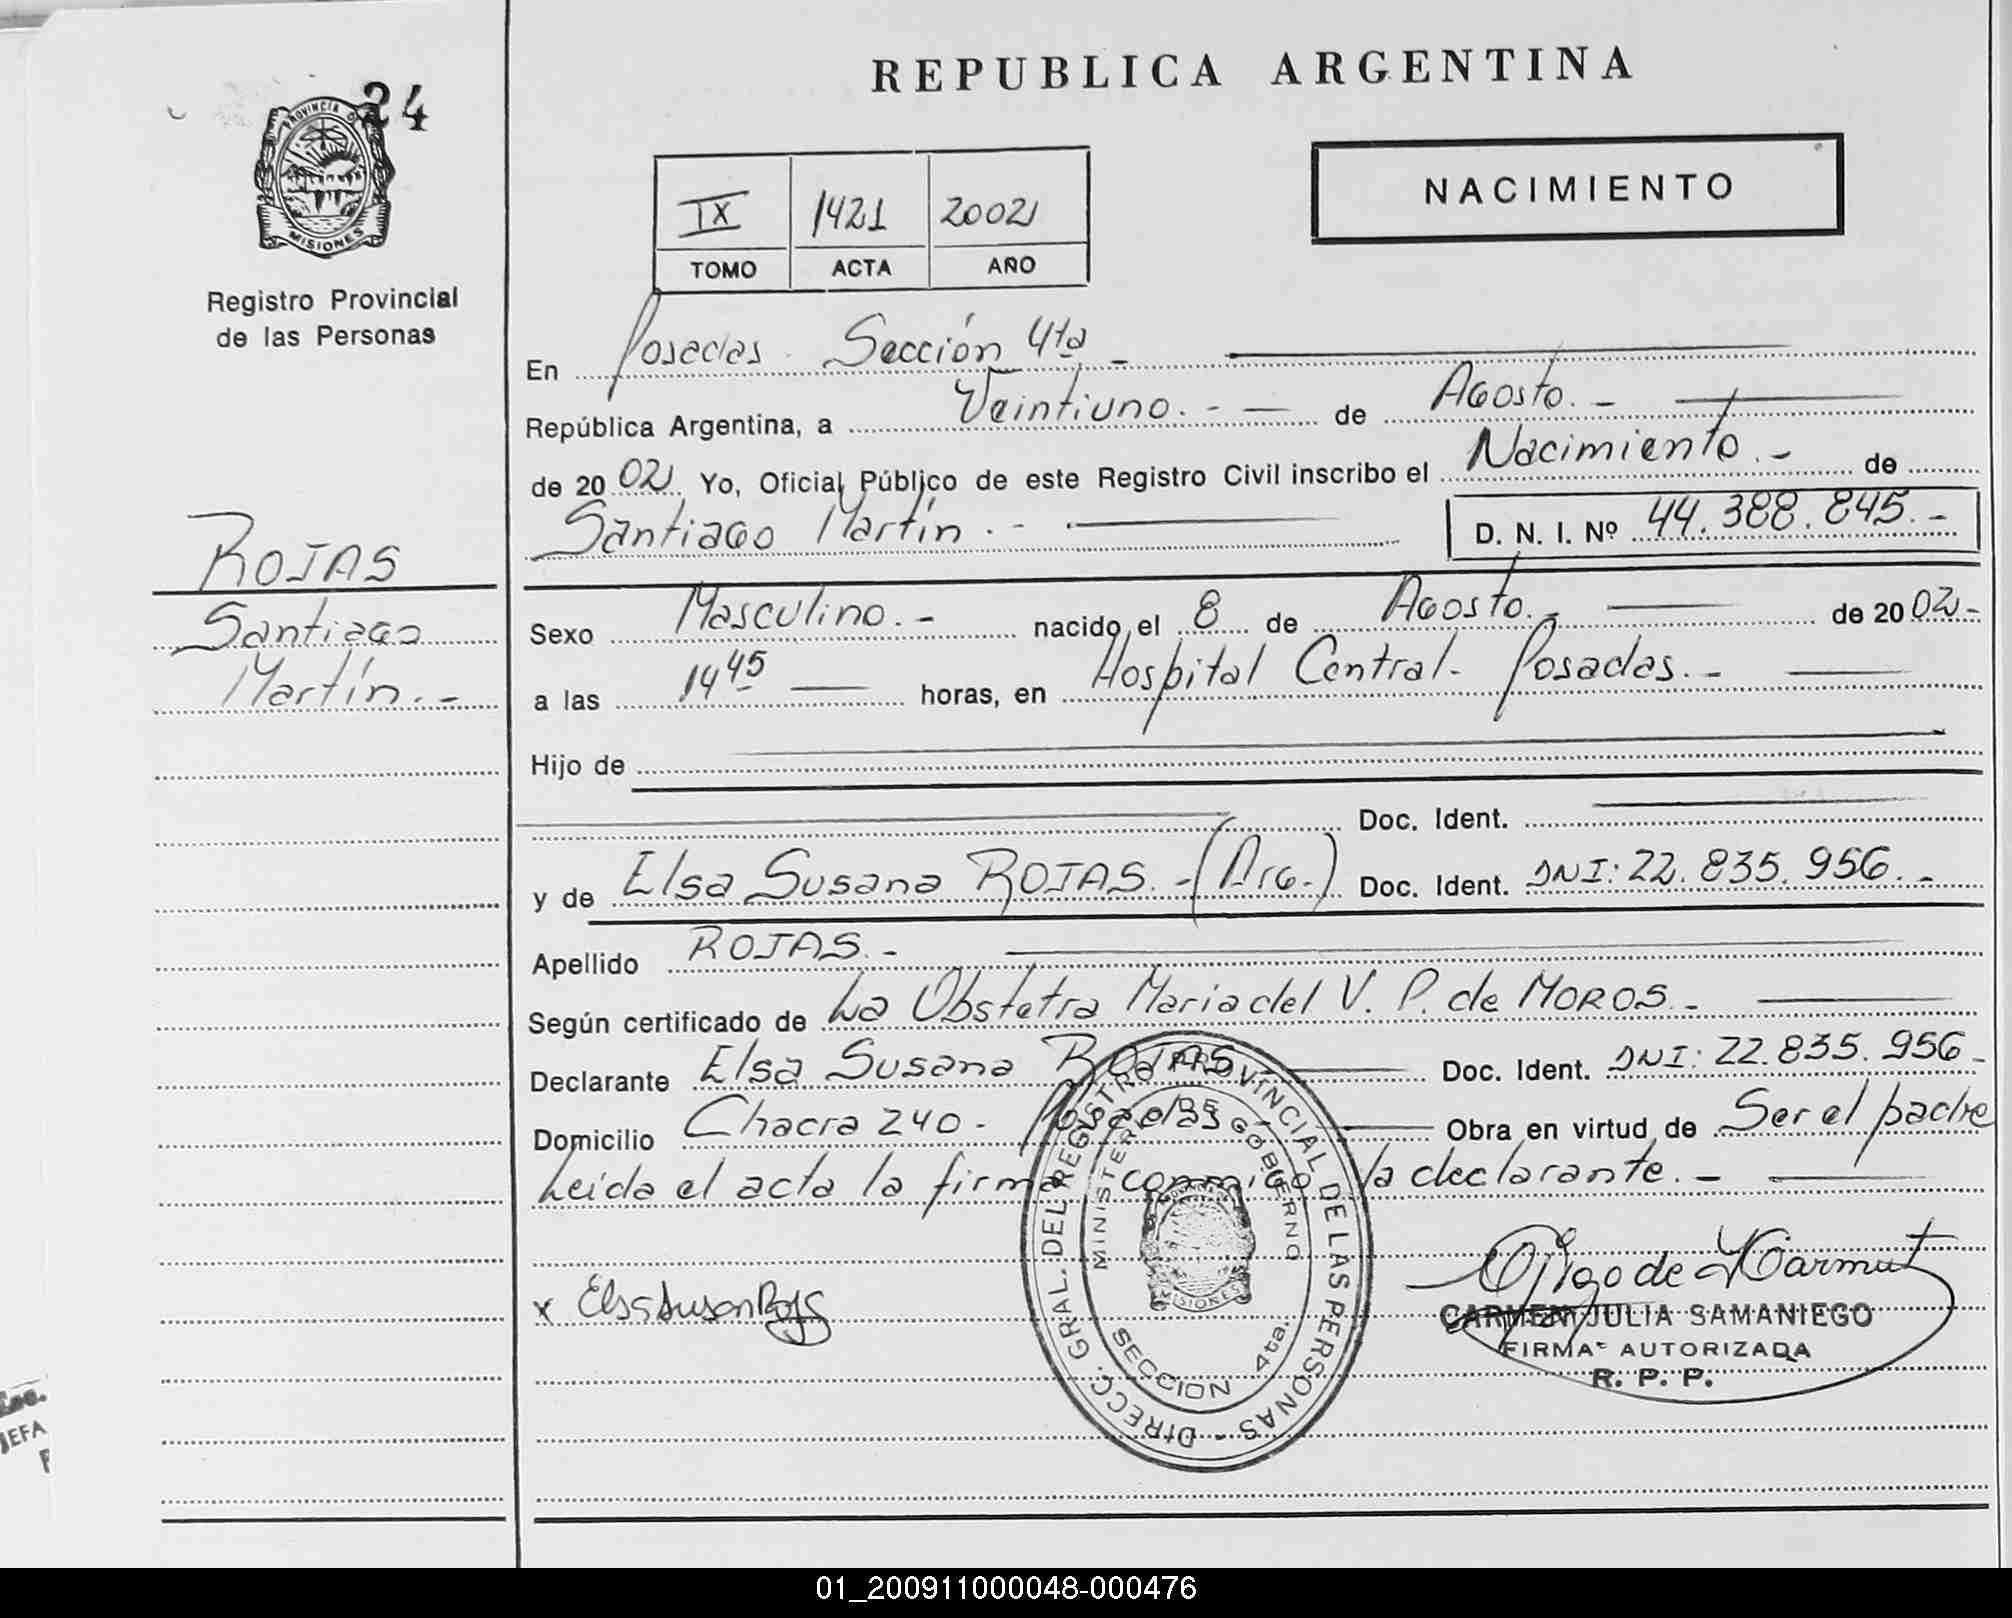 24
PROVINCIA DE
MISIONES
Registro Provincial
de las Personas
ROJAS
Santiago
Martín.-
REPUBLICA ARGENTINA
NACIMIENTO
IX 1421 2002
TOMO ACTA AÑO
En Posadas. Sección 4ta -
República Argentina, a Veintiuno.- de Agosto.-
de 2002 Yo, Oficial Público de este Registro Civil inscribo el Nacimiento.- de
Santiago Martín.- D. N. I. Nº 44.388.845.-
Sexo Masculino.- nacido el 8 de Agosto.- de 2002-
a las 14 45 horas, en Hospital Central- Posadas.-
Hijo de
Doc. Ident.
y de Elsa Susana ROJAS.-(Arg.) Doc. Ident. DNI: 22.835.956.-
Apellido ROJAS.-
Según certificado de La Obstetra Maria del V. P. de MOROS.-
Declarante Elsa Susana ROJAS Doc. Ident. DNI: 22.835.956-
Domicilio Chacra 240- Posadas- Obra en virtud de Ser el padre
Leída el acta la firma conmigo la declarante.-
DIRECC. GRAL. DEL REGISTRO PROVINCIAL DE LAS PERSONAS -
MINISTERIO DE GOBIERNO
MISIONES
SECCION 4ta.
x Elsa Susan Rojas
CARMEN JULIA SAMANIEGO
FIRMA AUTORIZADA
R. P. P.
JEFA
01_200911000048-000476